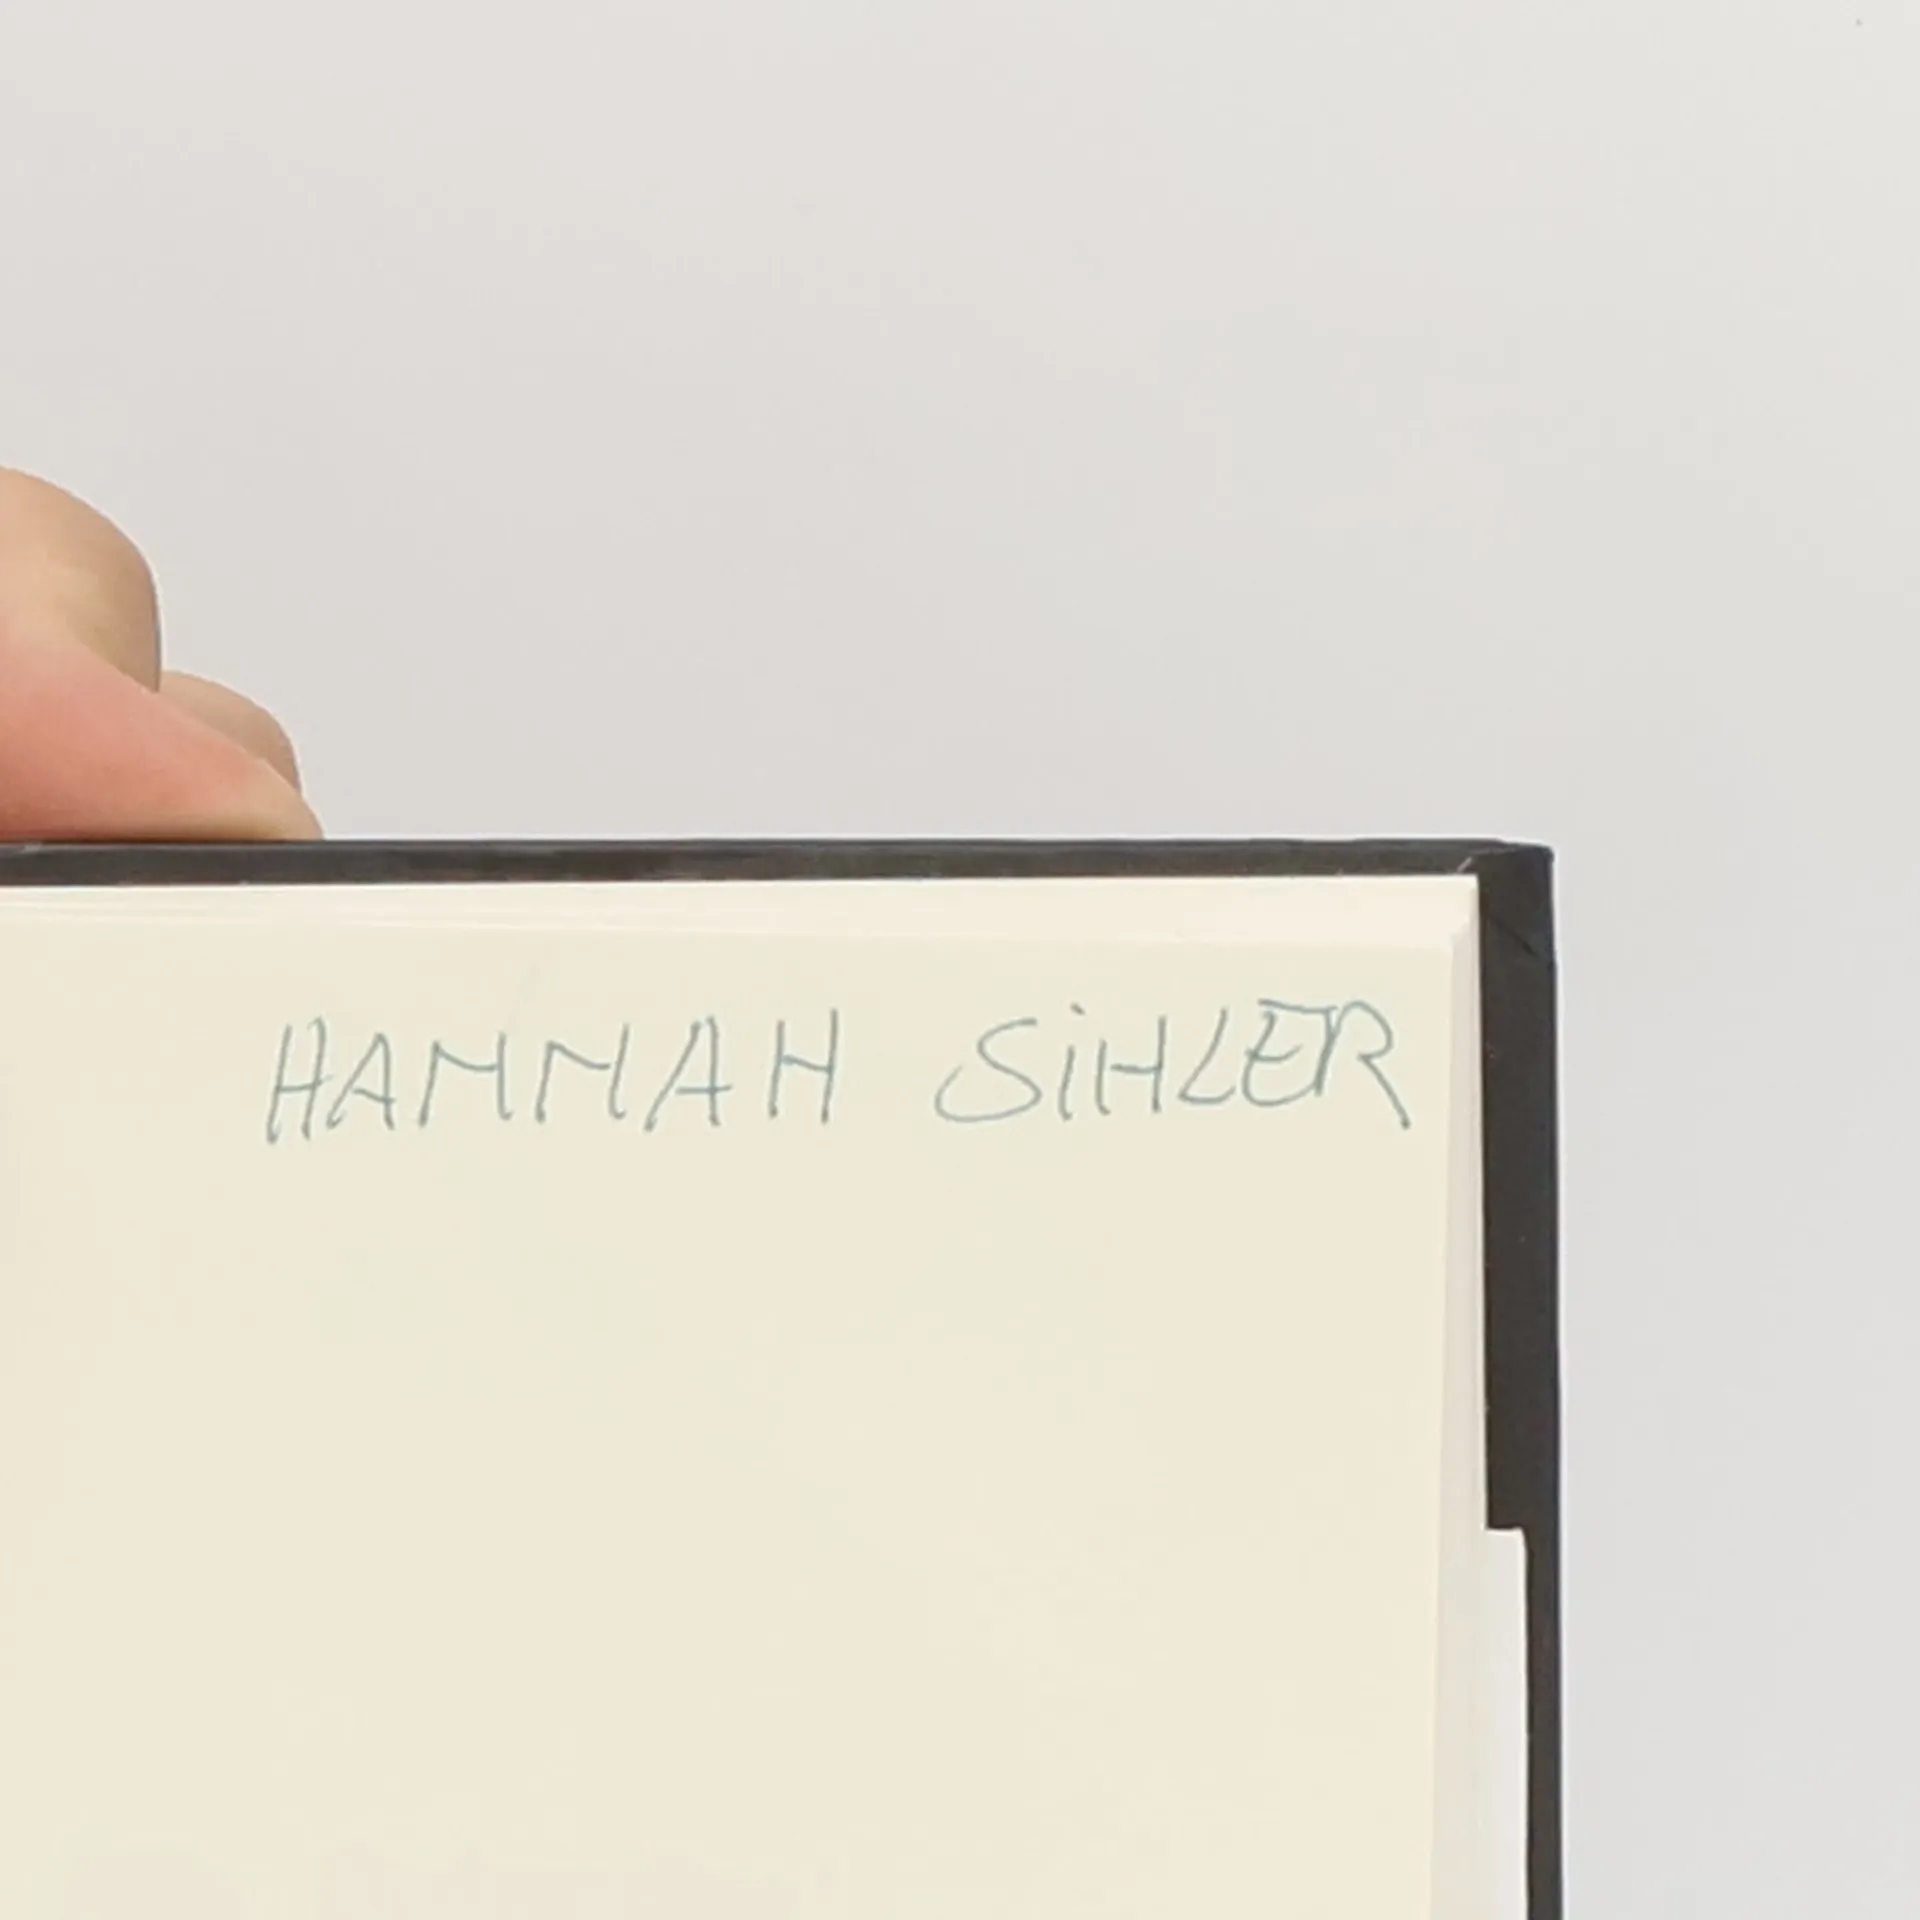 HANNAH SiHLER